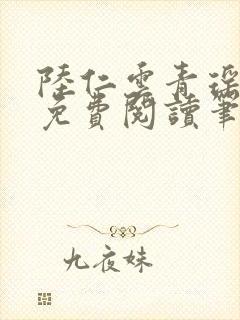 陸仁雲青瑶
免費閱讀筆
九夜妹